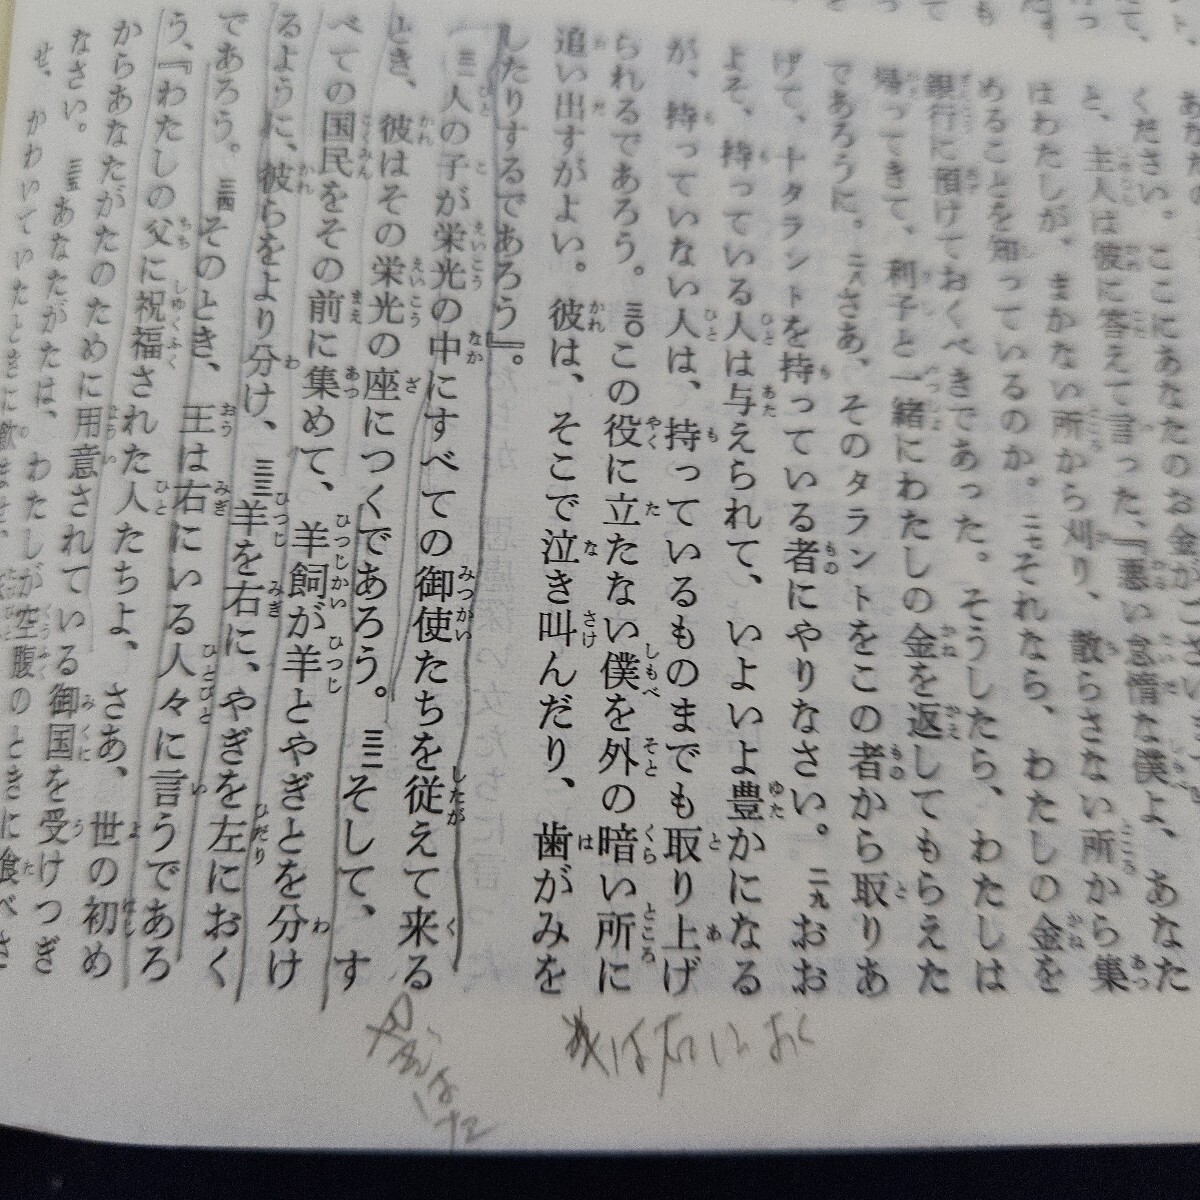 ください。ここにあなたのお金がございま
と、主人は彼に答えて言った、『悪い怠惰な僕よ、あなた
はわたしが、まかない所から刈り、散らさない所から集
めることを知っているのか。二七それなら、わたしの金を
銀行に預けておくべきであった。そうしたら、わたしは
帰ってきて、利子と一緒にわたしの金を返してもらえた
であろうに。二八さあ、そのタラントをこの者から取りあ
げて、十タラントを持っている者にやりなさい。二九おお
よそ、持っている人は与えられて、いよいよ豊かになる
が、持っていない人は、持っているものまでも取り上げ
られるであろう。三〇この役に立たない僕を外の暗い所に
追い出すがよい。彼は、そこで泣き叫んだり、歯がみを
したりするであろう』。
三一人の子が栄光の中にすべての御使たちを従えて来る
とき、彼はその栄光の座につくであろう。三二そして、す
べての国民をその前に集めて、羊飼が羊とやぎとを分け
るように、彼らをより分け、三三羊を右に、やぎを左におく
であろう。三四そのとき、王は右にいる人々に言うであろ
う、『わたしの父に祝福された人たちよ、さあ、世の初め
からあなたがたのために用意されている御国を受けつぎ
なさい。三五あなたがたは、わたしが空腹のときに食べさ
せ、かわいていたときに飲ませ、
は右に おく